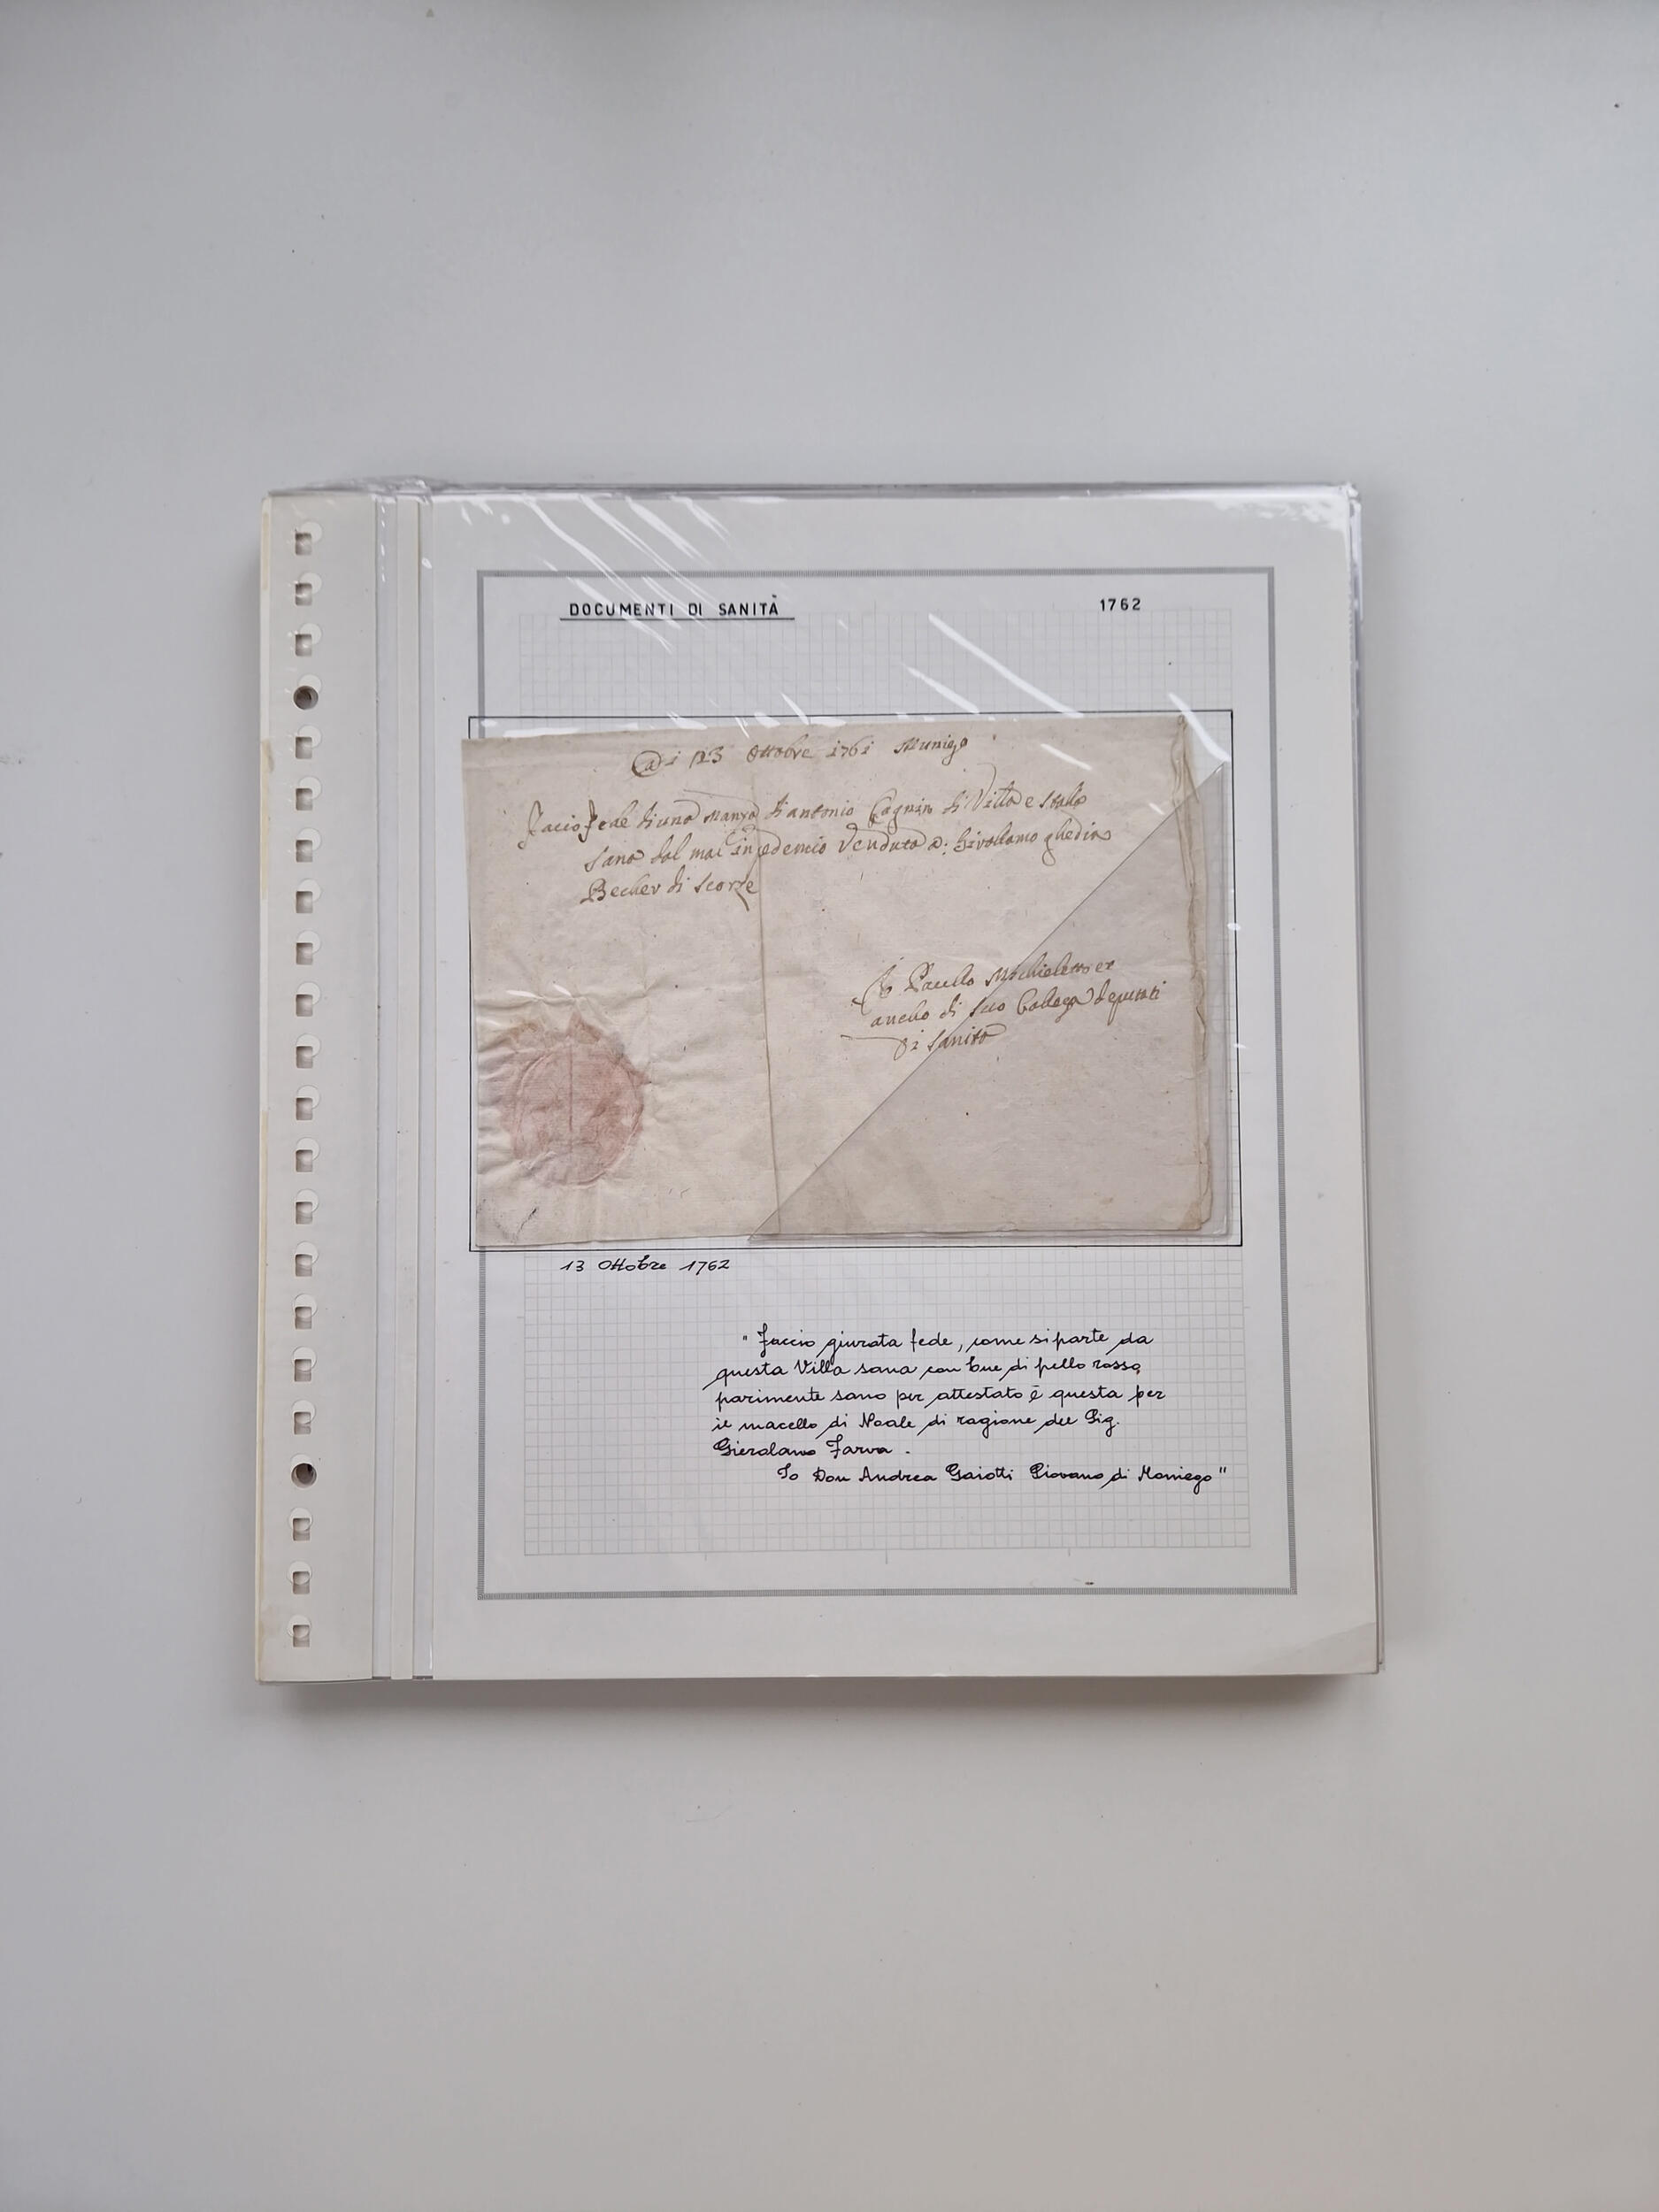 DOCUMENTI DI SANITÀ
1762
Ottobre 1761 Munigo
Faccio fede di una Manza di Antonio di Villa e Stalla
Sana dal mal Venduta a: Girollamo ghedin
Becher di Scorze
Io Paullo Michieletto et
anello di suo Collega deputati
di Sanita
13 Ottobre 1762
" Faccio giurata fede, come si parte da
questa Villa sana con bue di pello rosso
parimente sano per attestato è questa per
il macello di Noale di ragione del Sig.
Gierolamo Farva.
Io Don Andrea Gaiotti Piovano di Moniego"